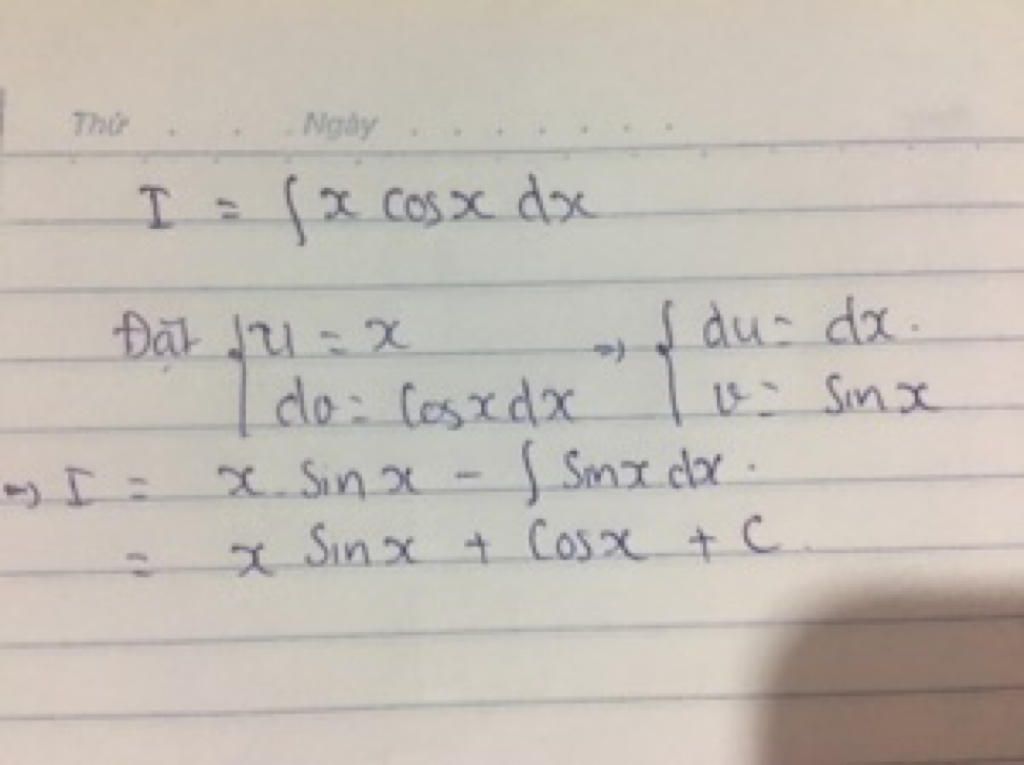 Thứ . . . Ngày . . . . . . . .
I = ∫ x cosx dx
Đặt { u = x => { du = dx.
dv = cosxdx v = sinx
=> I = x . sinx - ∫ sinx dx .
= x sinx + cosx + C .